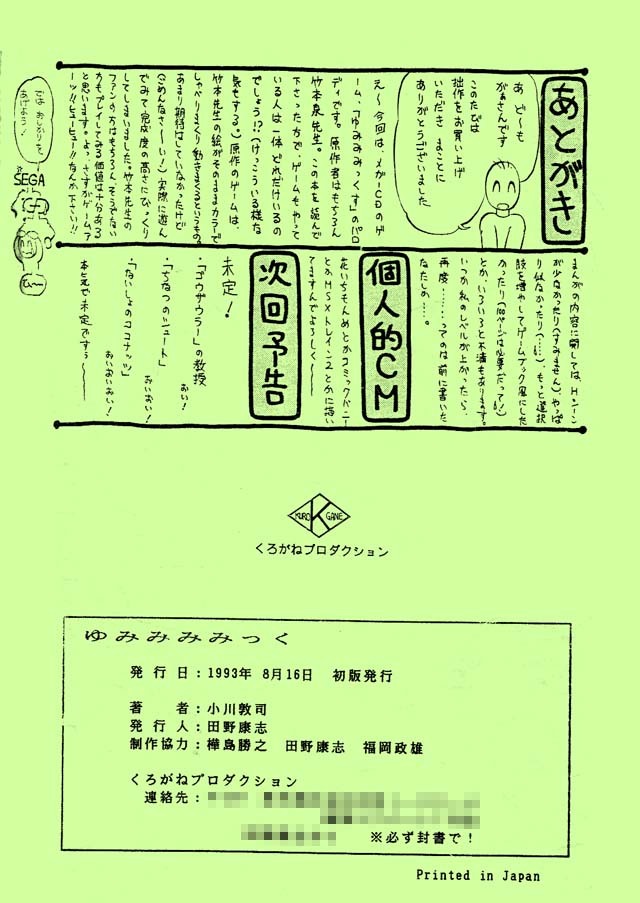 あとがき
あ ど〜も
がぁさんです
このたびは
拙作をお買い上げ
いただき まことに
ありがとうございました
え〜今回は、メガーCDのゲ
ーム、「ゆみみみっくす」のパロ
ディです。原作者はもちろん
竹本泉先生。この本を読んで
下さった方で、ゲームもやって
いる人は一体どれだけいるの
でしょう!?(けっこういる様な
気もする。)原作のゲームは、
竹本先生の絵がそのままカラーで
しゃべりまくり動きまくるというもの。
あまり期待はしていなかったけど
(ごめんなさ〜い!)実際に遊ん
でみて完成度の高さにびっくり
してしまいました。竹本先生の
ファンの方はもちろん、そうでない
方もプレイしてみる価値は十分ある
と思います。よっ、さすがゲームア
ーツ!!ヒューヒュー!!なんか下さい!!
では おしかりを
あげよう!
SEGA
まんがの内容に関しては、Hシーン
が少なかったり(すみません)、やっぱ
り似なかったり(…)、もっと選択
肢を増やしてゲームブック風にした
かったり(100ページは必要だって!)
とか、いろいろと不満もあります。
いつか私のレベルが上がったら、
再度……ってのは前に書いた
なたしか…。
個人的CM
花いちもんめとかコミックバニー
とかMSXトレイン2とかに描い
てますんでよろしく〜
次回予告
未定!
・「ゴウザウラー」の教授
おい!
・「ちなつのシュート」
おいおい!
・「ないしょのココナッツ」
おいおいおい!
本とえや未定ですぅ〜
KURO K GANE
くろがねプロダクション
ゆみみみみっく
発行日:1993年 8月16日 初版発行
著者:小川敦司
発行人:田野康志
制作協力:樺島勝之 田野康志 福岡政雄
くろがねプロダクション
連絡先:
※必ず封書で!
Printed in Japan